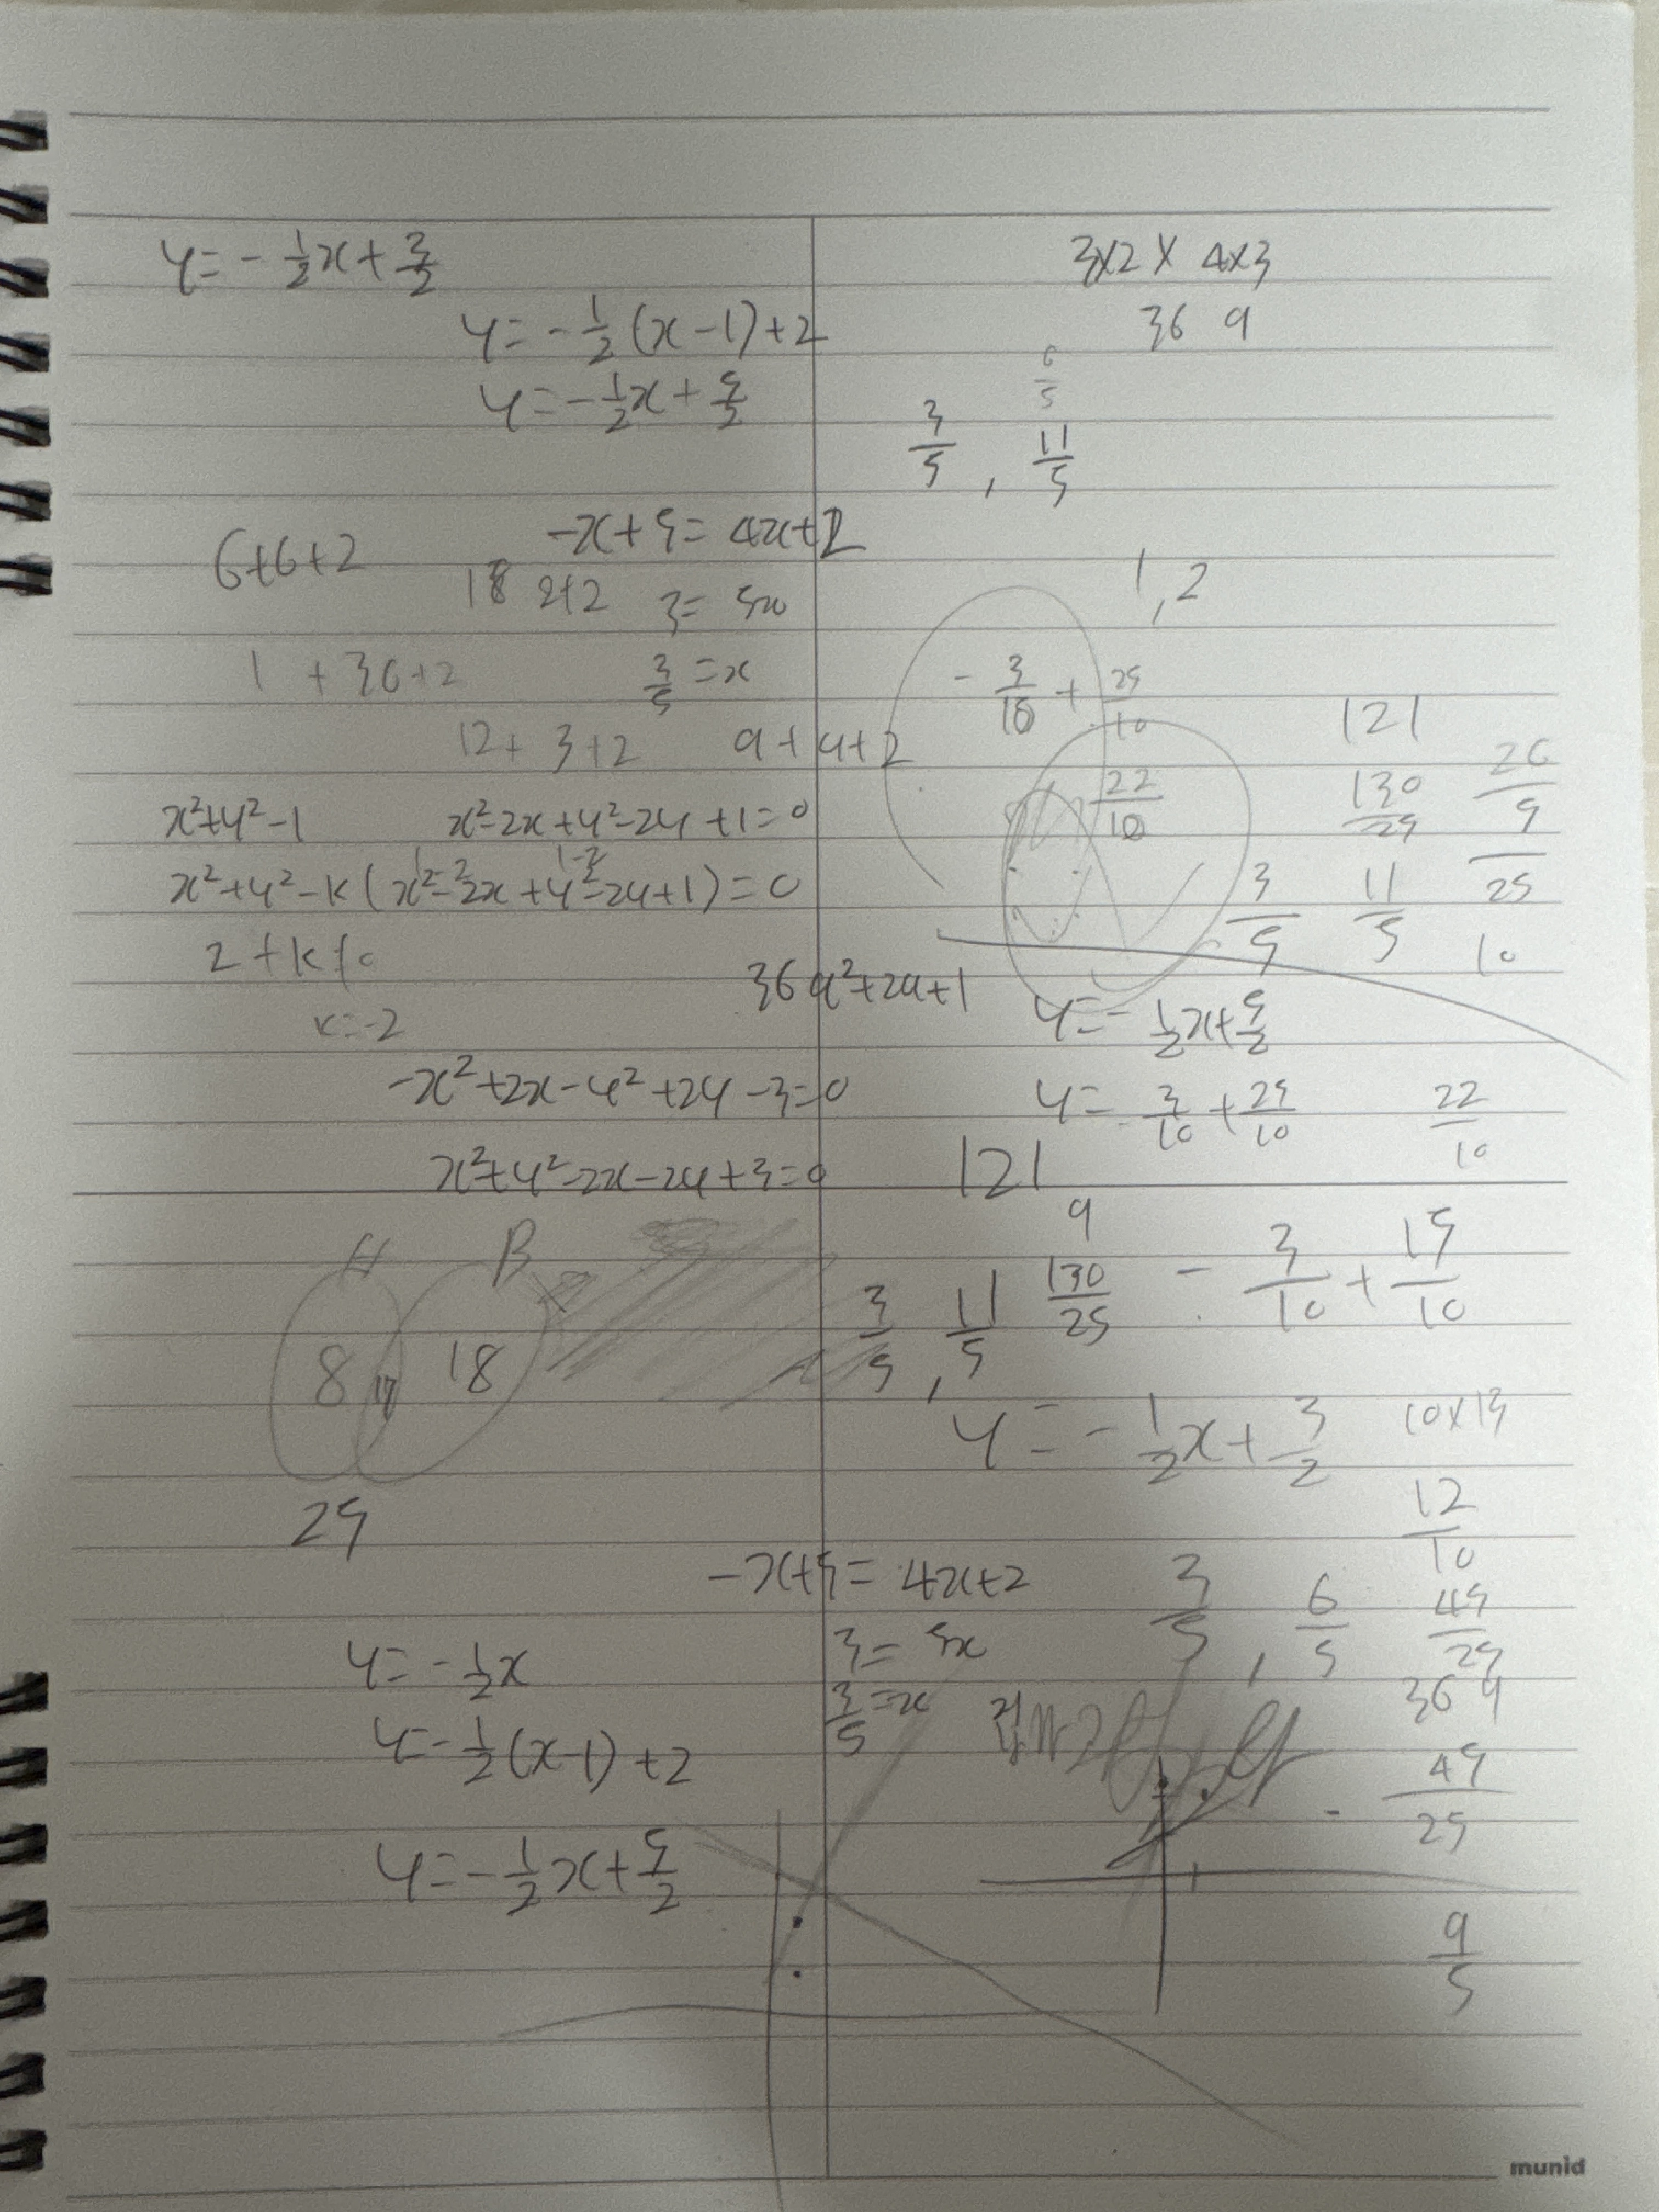 y=-1/2x+3/2
y=-1/2(x-1)+2
y=-1/2x+5/2
6+6+2
-x+5=4x+2
18 2+2
3=5x
1+36+2
3/5=x
12+3+2
9+4+2
x²+y²-1
x²-2x+y²-2y+1=0
x²+y²-k(x²-2x+y²-2y+1)=0
k=-2
-x²+2x-y²+2y-3=0
x²+y²-2x-2y+3=0
A B
8 17 18
25
y=-1/2x
y=-1/2(x-1)+2
y=-1/2x+5/2
3x2x 4x3
36 9
6/5
3/5, 11/5
1,2
-3/10+25/10
22/10
121
130/25
26/5
3/5 11/5
25
10
36 a²+2a+1
y=-1/2x+5/2
y=-3/10+25/10
22/10
121
9
3/5, 11/5 130/25
-3/10+15/10
y=-1/2x+3/2
10x13
12/10
-x+5=4x+2
3=5x
3/5=x
3/5, 6/5
45/25
36 9
45/25
9/5
munid